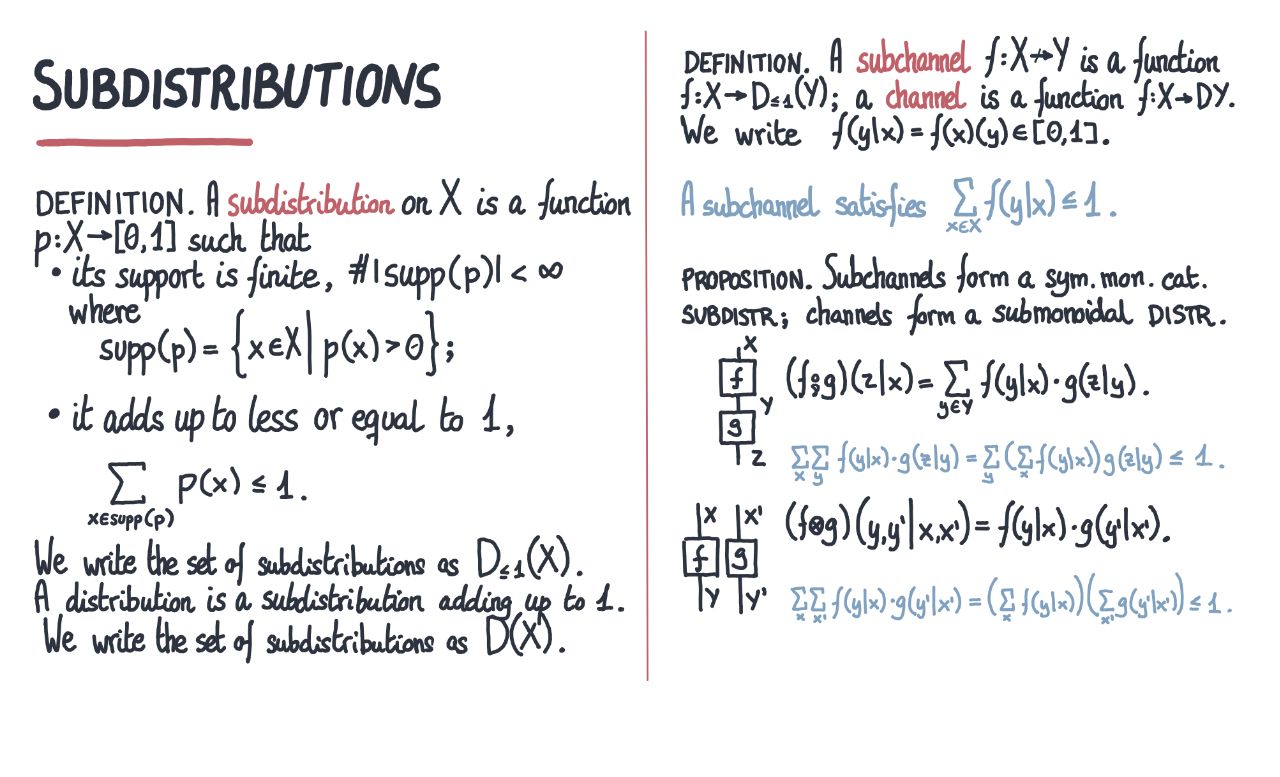 SUBDISTRIBUTIONS
DEFINITION. A subdistribution on X is a function
p:X→[0,1] such that
• its support is finite, #|supp(p)| < ∞
where
supp(p) = {x∈X | p(x) > 0};
• it adds up to less or equal to 1,
∑ p(x) ≤ 1.
x∈supp(p)
We write the set of subdistributions as D≤1(X).
A distribution is a subdistribution adding up to 1.
We write the set of subdistributions as D(X).
DEFINITION. A subchannel f:X⇸Y is a function
f:X→D≤1(Y); a channel is a function f:X→DY.
We write f(y|x) = f(x)(y) ∈ [0,1].
A subchannel satisfies ∑ f(y|x) ≤ 1.
x∈X
PROPOSITION. Subchannels form a sym. mon. cat.
SUBDISTR; channels form a submonoidal DISTR.
X
f
Y
g
Z
(f⨟g)(z|x) = ∑ f(y|x)·g(z|y).
y∈Y
∑∑ f(y|x)·g(z|y) = ∑(∑f(y|x))g(z|y) ≤ 1.
x y y x
X X'
f g
Y Y'
(f⊗g)(y,y'|x,x') = f(y|x)·g(y'|x').
∑∑ f(y|x)·g(y'|x') = (∑ f(y|x))(∑g(y'|x')) ≤ 1.
x x' x x'